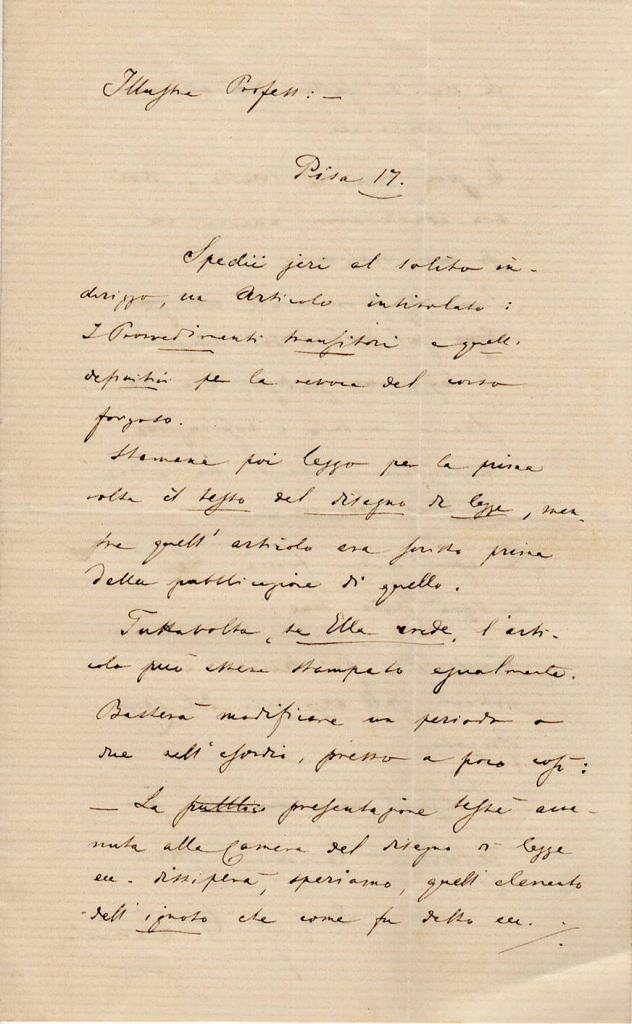 Illustre Profess: —
Pisa 17.
Spedii jeri al solito in-
dirizzo, un Articolo intitolato:
I Provvedimenti transitori e quelli
definitivi per la revoca del corso
forzoso.
Stamane poi leggo per la prima
volta il testo del disegno di legge, men-
tre quell' articolo era scritto prima
della pubblicazione di quello.
Tuttavolta, se Ella crede, l'arti-
colo può essere stampato egualmente.
Basterà modificare un periodo o
due nell' esordio, presso a poco così:
— La pubblic presentazione testè avve-
nuta alla Camera del disegno di legge
ecc. dissiperà, speriamo, quell' elemento
dell' ignoto che come fu detto ecc. .